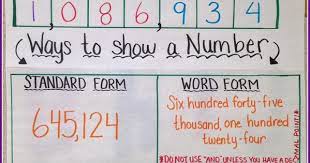 1,086,934
Ways to show a Number
STANDARD FORM
645,124
WORD FORM
Six hundred forty-five
thousand, one hundred
twenty-four.
*DO NOT USE "AND" UNLESS YOU HAVE A DECIMAL POINT!*